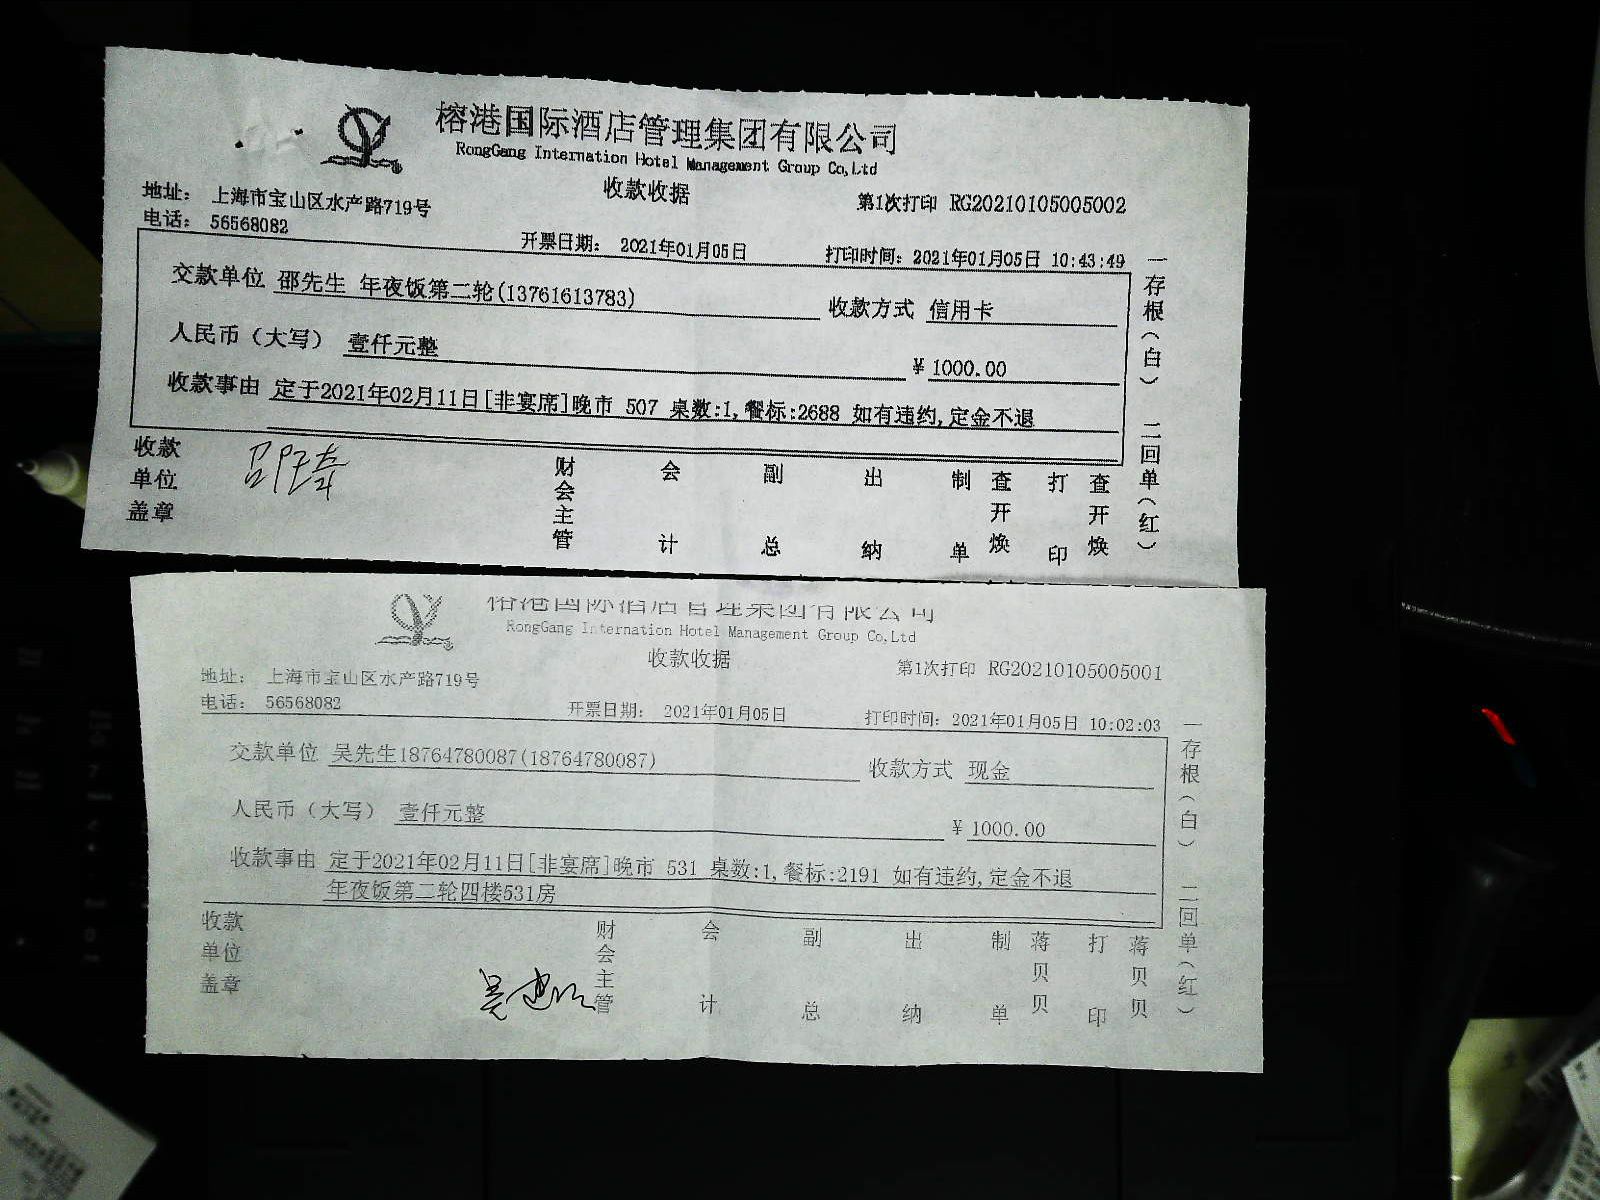 榕港国际酒店管理集团有限公司
RongGang Internation Hotel Management Group Co,Ltd
收款收据
第1次打印 RG20210105005002
地址： 上海市宝山区水产路719号
电话： 56568082
开票日期： 2021年01月05日
打印时间：2021年01月05日 10:43:49
交款单位 邵先生 年夜饭第二轮(13761613783)
收款方式 信用卡
人民币（大写） 壹仟元整
¥ 1000.00
收款事由 定于2021年02月11日[非宴席]晚市 507 桌数:1,餐标:2688 如有违约,定金不退
收款单位盖章
财会主管
会计
副总
出纳
制单
查开焕
打印
查开焕
一存根（白） 二回单（红）
榕港国际酒店管理集团有限公司
RongGang Internation Hotel Management Group Co,Ltd
收款收据
第1次打印 RG20210105005001
地址： 上海市宝山区水产路719号
电话： 56568082
开票日期： 2021年01月05日
打印时间：2021年01月05日 10:02:03
交款单位 吴先生18764780087(18764780087)
收款方式 现金
人民币（大写） 壹仟元整
¥ 1000.00
收款事由 定于2021年02月11日[非宴席]晚市 531 桌数:1,餐标:2191 如有违约,定金不退
年夜饭第二轮四楼531房
收款单位盖章
财会主管
会计
副总
出纳
制单
蒋贝贝
打印
蒋贝贝
一存根（白） 二回单（红）